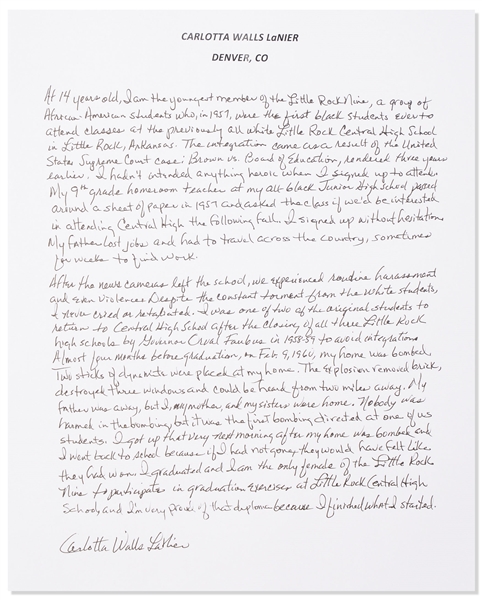 CARLOTTA WALLS LaNIER
DENVER, CO
At 14 years old, I am the youngest member of the Little Rock Nine, a group of
African-American students who, in 1957, were the first black students ever to
attend classes at the previously all white Little Rock Central High School
in Little Rock, Arkansas. The integration came as a result of the United
States Supreme Court case: Brown vs. Board of Education, rendered three years
earlier. I hadn't intended anything heroic when I signed up to attend.
My 9th grade homeroom teacher at my all-black Junior High School passed
around a sheet of paper in 1957 and asked the class if we'd be interested
in attending Central High the following fall. I signed up without hesitation.
My father lost jobs and had to travel across the country, sometimes
for weeks to find work.
After the news cameras left the school, we experienced routine harassment
and even violence. Despite the constant torment from the white students,
I never cried or retaliated. I was one of two of the original students to
return to Central High School after the closing of all three Little Rock
high schools by Governor Orval Faubus in 1958-59 to avoid integration.
Almost four months before graduation, on Feb 9, 1960, my home was bombed.
Two sticks of dynamite were placed at my home. The explosion removed brick,
destroyed three windows and could be heard from two miles away. My
father was away, but I, my mother, and my sisters were home. Nobody was
harmed in the bombing but it was the first bombing directed at one of us
students. I got up that very next morning after my home was bombed and
I went back to school because if I had not gone, they would have felt like
they had won. I graduated and I am the only female of the Little Rock
Nine to participate in graduation exercises at Little Rock Central High
School, and I'm very proud of that diploma because I finished what I started.
Carlotta Walls LaNier